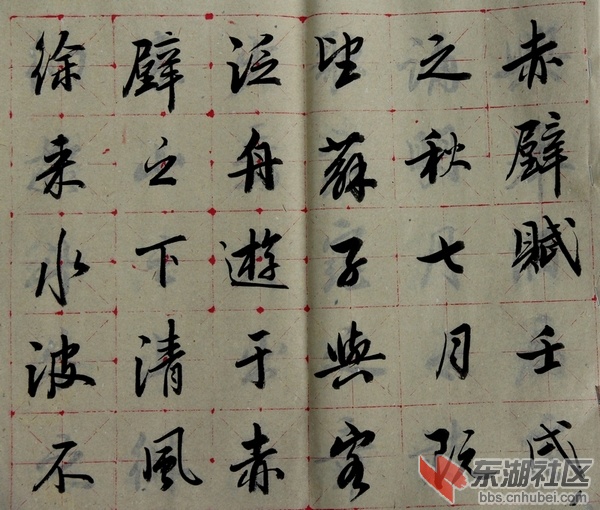 赤壁賦壬戌
之秋七月既
望蘇子與客
泛舟遊于赤
壁之下清風
徐来水波不
东湖社区
bbs.cnhubei.com